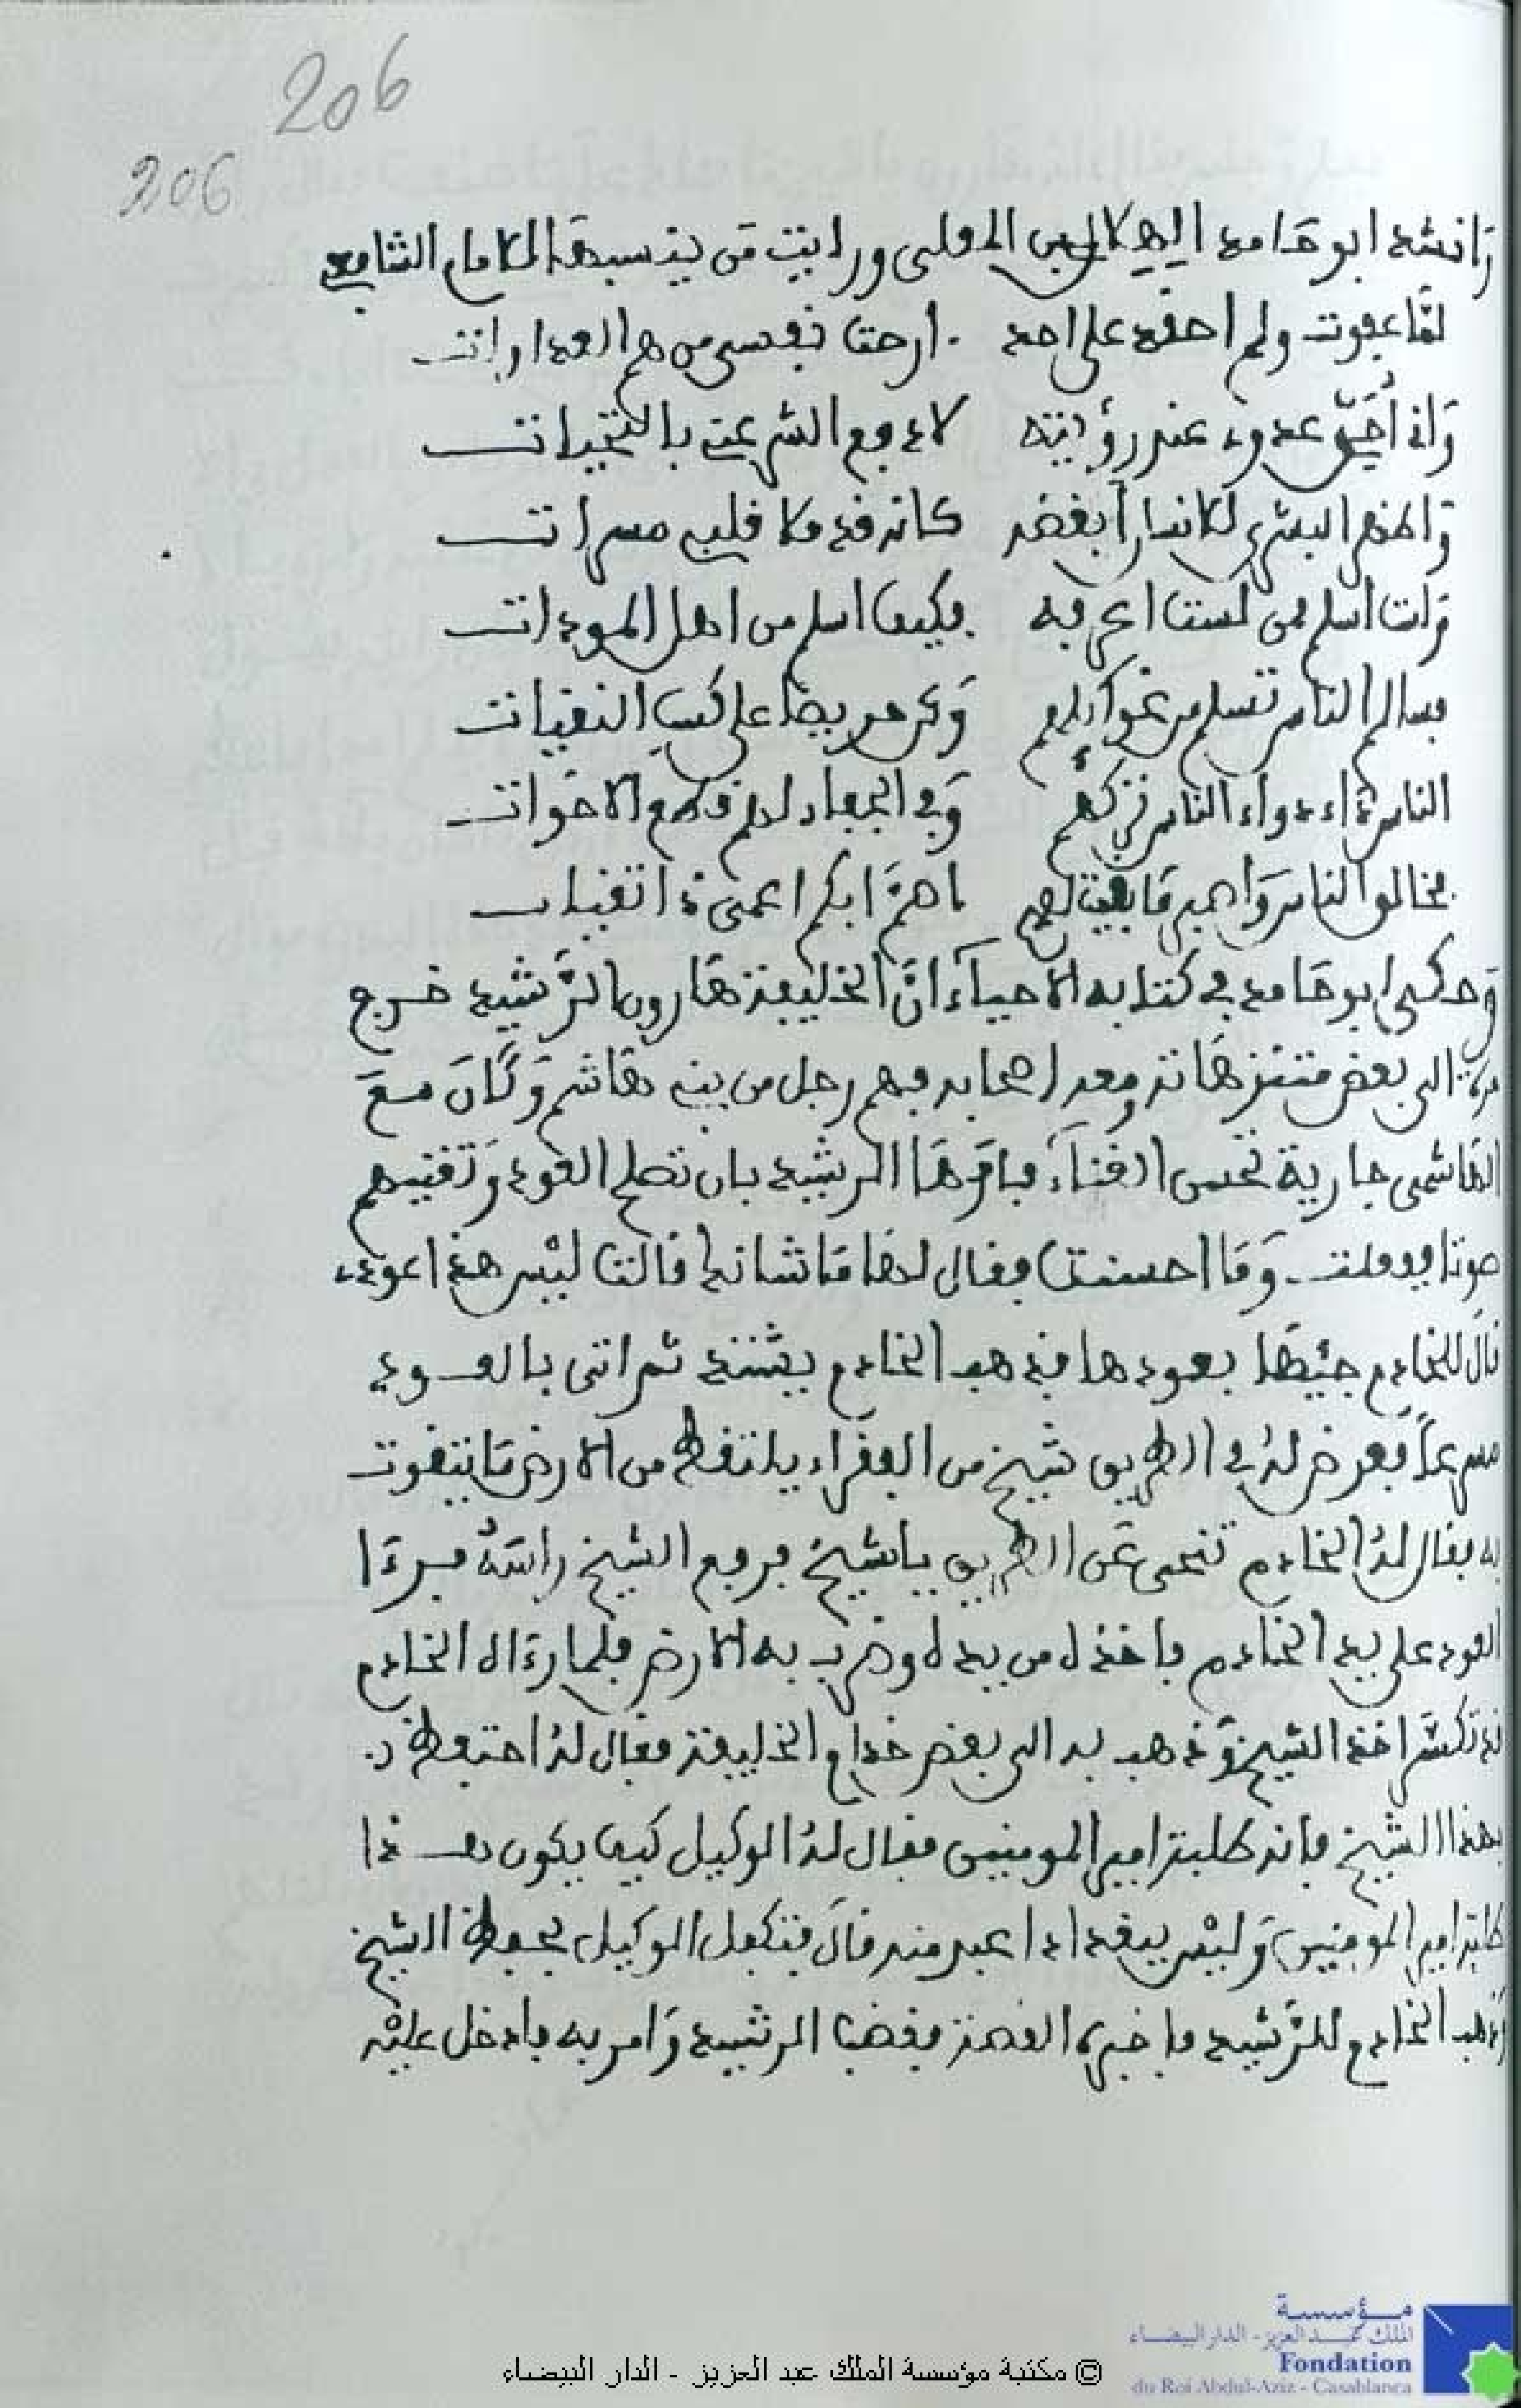 206
206
وَانشد ابو حَامد لهلال بن العلى ورايت مَن ينسبها للامام الشابعى
لمّا عفوت ولم احقد على احد ارحت نفسى من هم العداوات
وَانى اُحَيّى عدوى عند رؤيته لادفع الشر عنى بالتحيات
وَاظهر البشر للانسان أبغضه كانه قد ملا قلبى مسرات
وَلست اسلم ممن لست اعرفه فكيف اسلم من اهل المودات
فسالم الناس تسلم من غوائلهم وَكن حريصا على كسب التقيات
الناس دَاء دواء الناس تركهم وَفى الجفاء لهم قطع الاخوات
فخالق الناس وَاصبر مَا بقيت لهم اصمَّ ابكم اعمى ذا تقيات
وَحكى ابو حَامد في كتابه الاحياَء انَّ الخليفة هَارون الرَّشيد خرج
مرة الى بعض متنزهَاته ومعه اصحابه فيهم رجل من بنى هَاشم وَكَانَ مع
الهَاشمى جارية تحسن الغناَء فامَرهَا الرشيد بان تصلح العود وَتغنيهم
صوتا ففعلت وَمَا احسنت فقال لهَا مَا شانك قالت ليْس هذا عودى
قالَ للخادم جئهَا بعودها فذهب الخادم يشتد ثم اتى بالعود
مسرعاً فعرض لهُ في الطريق شيخ من الفقراء يلتقط من الارض مَا يتقوت
به فقال لهُ الخادم تنحى عَن الطريق ياشيخ فرفع الشيخ راسَهُ فرءَا
العود على يد الخادم فاخذه من يده وضرب به الارض فلما رءَاه الخادم
قد تكسَّر اخذ الشيخ وَذهب به الى بعض خدام الخليفة فقال لهُ احتفظ
بهذا الشيخ فانه طلبة امير المومنين فقال لهُ الوكيل كيف يكون هذا
طلبة امير المومنين وَليْس ببغداد اعبد منه قالَ فتكفل الوكيل بحفظ الشيخ
وَذهب الخادم للرَّشيد فاخبره القصة فغضب الرشيد وَامر به فادخل عليْه
مؤسسة
الملك عبد العزيز - الدار البيضاء
Fondation
du Roi Abdul-Aziz - Casablanca
© مكتبة مؤسسة الملك عبد العزيز - الدار البيضاء